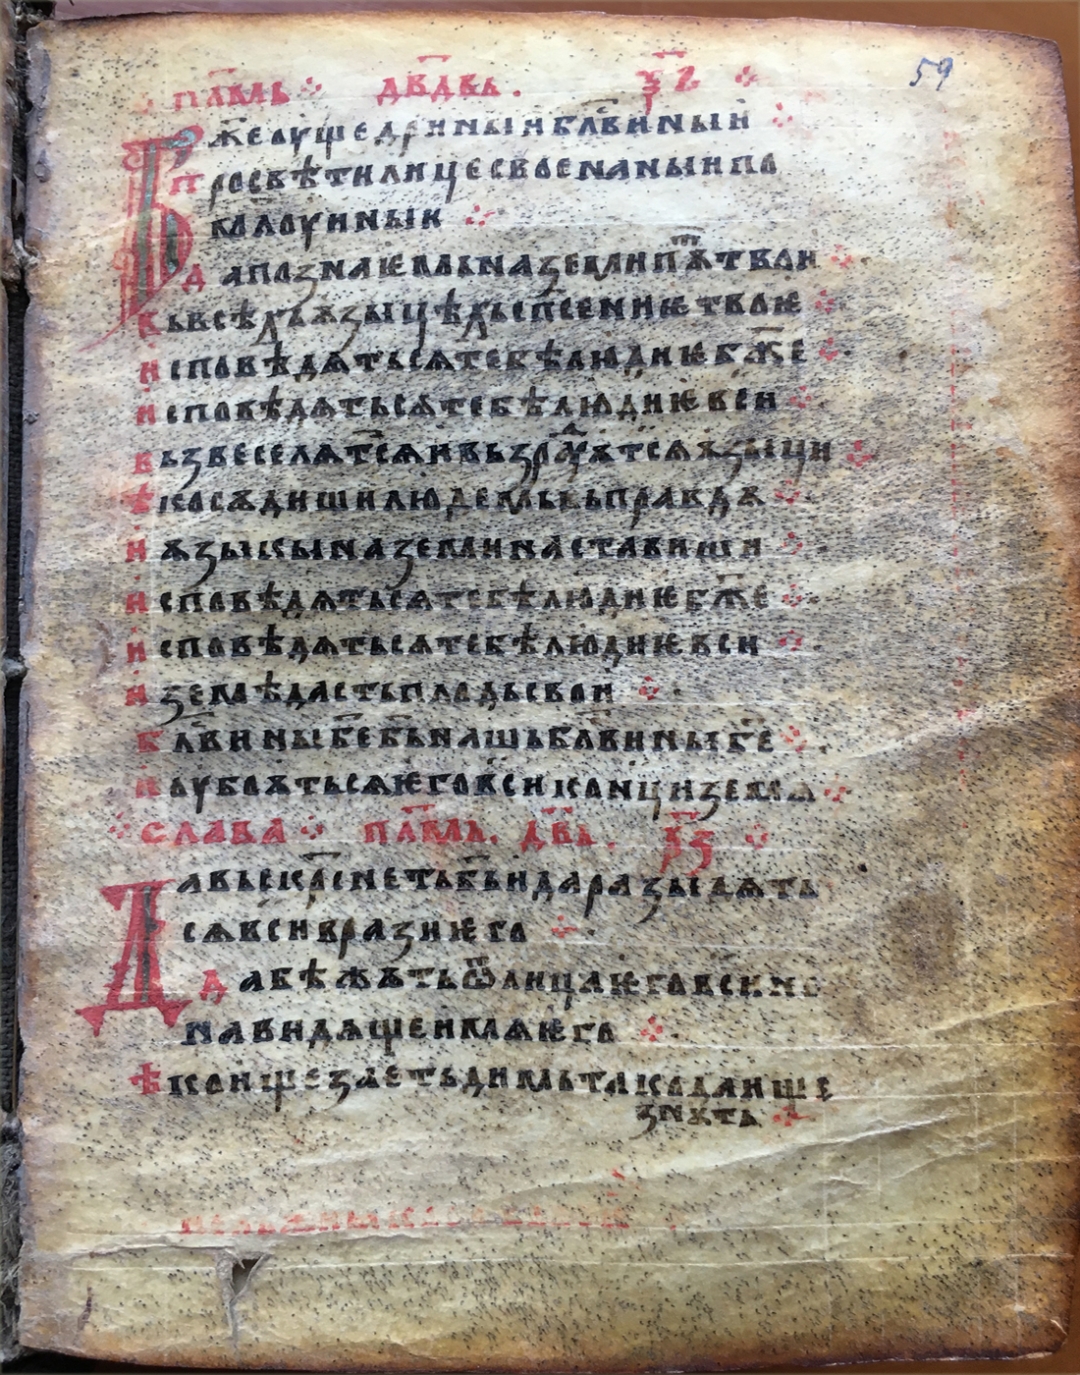 59
п︮с︯алмь дв︮д︯вь. ѯ︮ѕ︯
Бж︮е︯ ꙋщедри ны и бл︮в︯и ны и
просвѣти лице свое на ны и по
малоуи ны и҆
Да познаѥмь на земли пѫ︮т︯ твои
Вь всѣхь ѫзыцѣхь сп︮с︯ениѥ твоѥ
Исповѣдѧтьсѧ тебѣ людиѥ бж︮е︯
Исповѣдѧтьсѧ тебѣ людиѥ вси
Вьзвеселѧ︮т︯сѧ и вьзра︮д︯ꙋѫтсѧ ѫзыци
Ѣко сѫдиши людемь вь правдѫ
И ѫзыкы на земли наставиши
Исповѣдѧтьсѧ тебѣ людиѥ бж︮е︯
Исповѣдѧтьсѧ тебѣ людиѥ вси
И землѣ дасть плодь свои
Бл︮в︯и ны б︮е︯ б︮ь︯ нашь бл︮в︯и ны б︮е︯
И оубоѫтьсѧ ѥго вси конци земѧ
слава п︮с︯алмь. дв︮д︯ь. ѯ︮з︯
Да вьскр︮с︯неть б︮ь︯ и да разыдѫть
сѧ вси врази ѥго
Да бѣжѫть ѿ лица ѥго вси не
навидѧщеи имѧ ѥго
Ѣко ищезаеть димь тако да ище
знꙋть